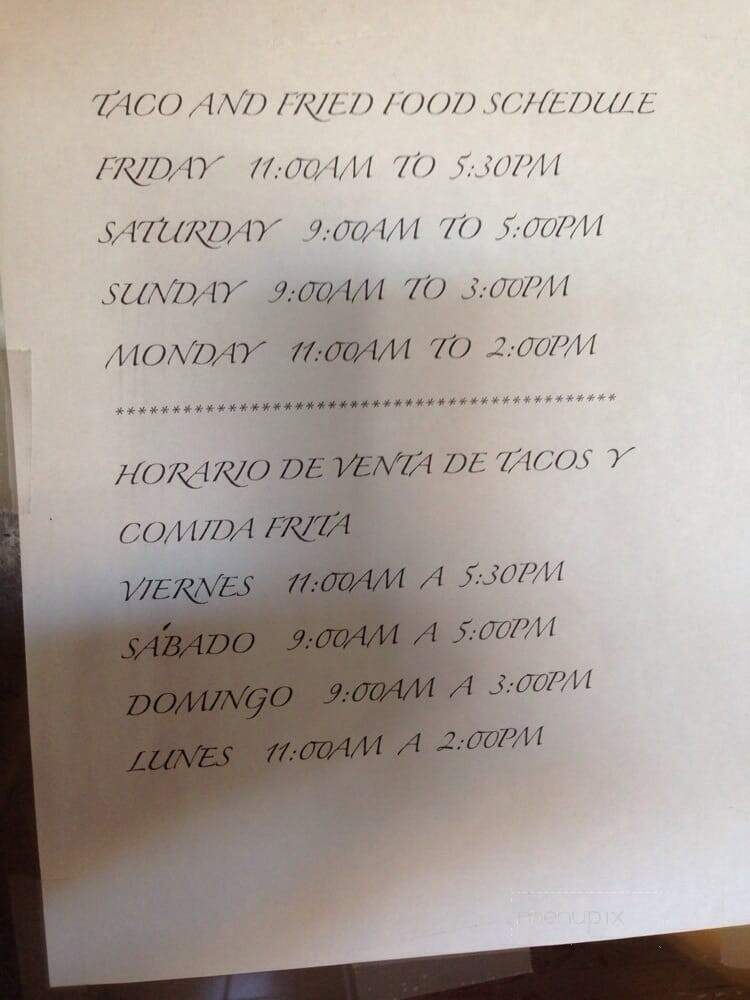 TACO AND FRIED FOOD SCHEDULE
FRIDAY 11:00AM TO 5:30PM
SATURDAY 9:00AM TO 5:00PM
SUNDAY 9:00AM TO 3:00PM
MONDAY 11:00AM TO 2:00PM
**********************************************
HORARIO DE VENTA DE TACOS Y
COMIDA FRITA
VIERNES 11:00AM A 5:30PM
SÁBADO 9:00AM A 5:00PM
DOMINGO 9:00AM A 3:00PM
LUNES 11:00AM A 2:00PM
menupix